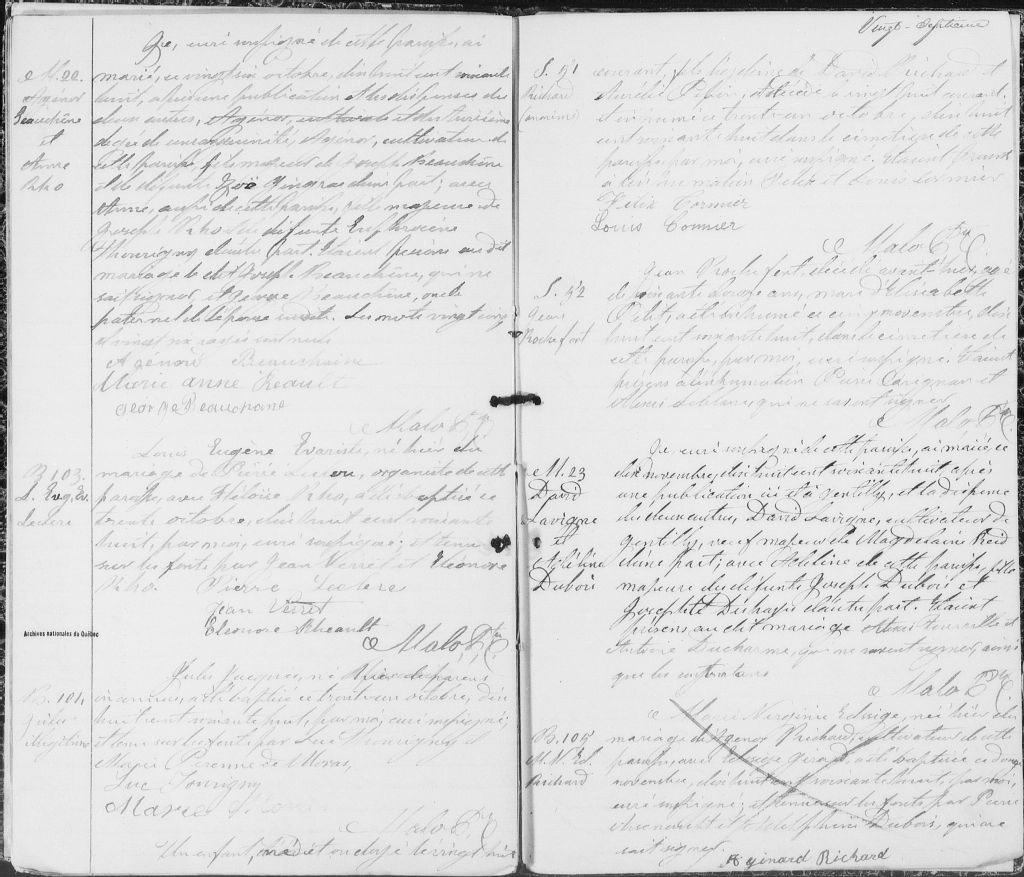 Je, curé soussigné de cette paroisse, ai
M. 22.
Agénor
Beauchêne
et
Anne
Rho
marié, ce vingt six octobre, dix huit cent soixante
huit, après une publication et les dispenses de
deux autres, et du troisième
degré de consanguinité, Agénor, cultivateur de
cette paroisse, fils majeur de Joseph Beauchêne
et de défunte Zoë Gingras d'une part; avec
Anne, aussi de cette paroisse, fille majeure de
Joseph Rho et de défunte Euphrosine
Thourigny d'autre part. Etaient présens au dit
mariage le dit Joseph Beauchêne, qui ne
sait signer, et George Beauchêne, oncle
paternel de l'épouse Les mots vingt cinq
rayés sont nuls
Agénord Beauchaine
Marie anne Reault
George Beauchane
Malo Ptre
B. 103.
L. Eug. Ev.
Leclere
Louis Eugène Evariste, né hier du
mariage de Pierre Leclere, organiste de cette
paroisse, avec Héloise Rho, a été baptisé ce
trente octobre, dix huit cent soixante
huit, par moi, curé soussigné; et tenu
sur les fonts par Jean Verret et Eléonore
Rho. Pierre Leclere
Jean Verret
Eleonore Rheault
Malo Ptre
Archives nationales du Québec
B. 104
Jules
illégitime
Jules Jacques, né hier de parens
inconnus, a été baptisé ce trente un octobre, dix
huit cent soixante huit, par moi, curé soussigné;
et tenu sur les fonts par Luc Thourigny et
Marie
Luc Tourigny
Marie
Malo Ptre
Un enfant, ondoyé le vingt huit
Vingt-Septieme
S. 51
Richard
(anonime)
courant, fils de David Richard et
Aurélie est décédé le vingt huit courant;
et inhumé ce trente un octobre, dix huit
cent soixante huit dans le cimetière de cette
paroisse par moi, curé soussigné. Etaient présens
à l'inhumation Felix et Louis Cormier
Felix Cormier
Louis Cormier
Malo Ptre
S. 52
Jean
Rochefort
Jean Rochefort, décédé avant hier, agé
de soixante ans, mari d'Elisabeth
Petit, a été inhumé ce cinq novembre, dix
huit cent soixante huit, dans le cimetière de
cette paroisse, par moi, curé soussigné. Etaient
présens à l'inhumation Pierre Carignan et
qui ne savent signer
Malo Ptre
M. 23
David
Lavigne
et
Adéline
Dubois
Je, curé soussigné de cette paroisse, ai marié, ce
dix novembre, dix huit cent soixante huit après
une publication ici et à Gentilly, et la dispense
de deux autres, David Lavigne, cultivateur de
Gentilly, veuf majeur de Magdelaine
d'une part; avec Adéline de cette paroisse, fille
majeure des défunts Joseph Dubois et
Josephte Duhayse d'autre part. Etaient
présens au dit mariage
Antoine Ducharme, qui ne savent signer, ainsi
que les contractans
Malo Ptre
B. 105
M. V. Ed.
Richard
Marie Virginie Edwige, née hier du
mariage de Agénor Richard, cultivateur de cette
paroisse, avec a été baptisée ce douze
novembre, dix huit cent soixante huit, par moi,
curé soussigné; et tenue sur les fonts par Pierre
et Delphine Dubois, qui ne
sait signer.
Aginard Richard